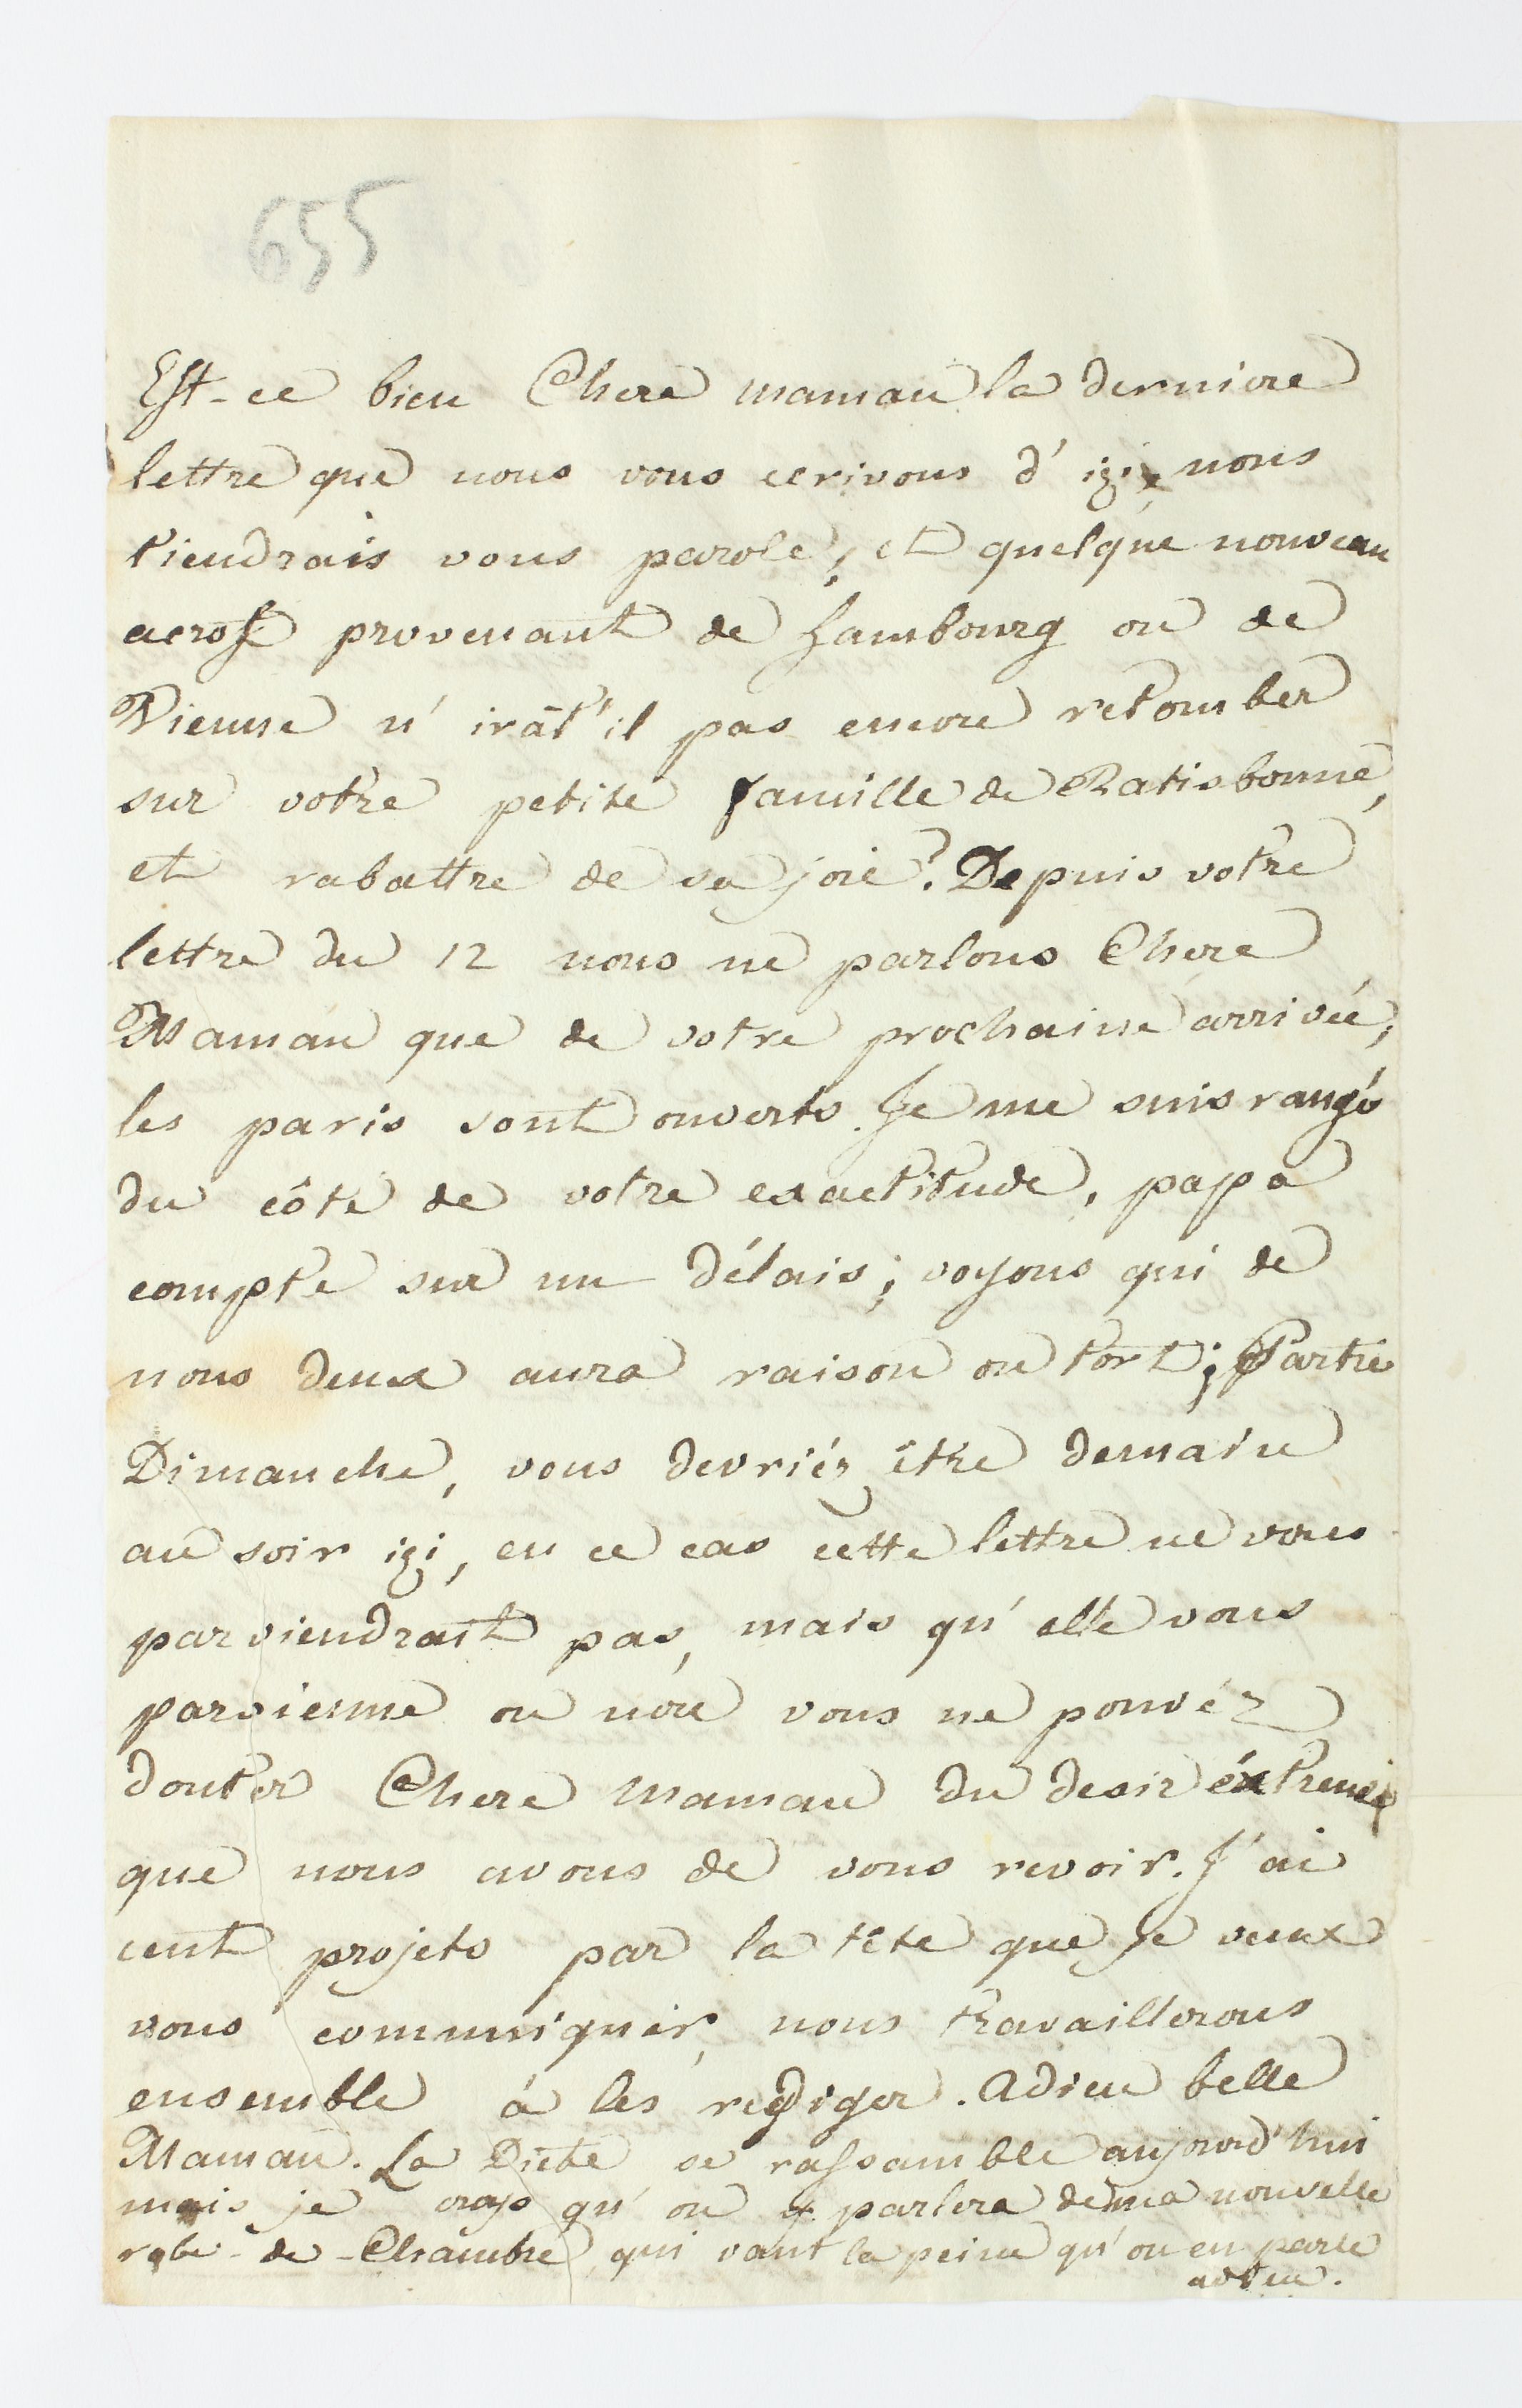 655
Est-ce bien Chere maman la derniere
lettre que nous vous ecrivons d'izi, nous
tiendrais vous parole, et quelque nouveau
acrost provenant de Hambourg ou de
Vienne n'irât'il pas encore retomber
sur votre petite famille de Ratisbonne,
et rabattre de sa joie? Depuis votre
lettre du 12 nous ne parlons Chere
Maman que de votre prochaine arrivée,
les paris sont ouverts. Je me suis rangé
du côté de votre exactitude, papa
compte sur un délais; voyons qui de
nous deux aura raison ou tort; Partie
Dimanche, vous devriéz être demain
au soir izi, en ce cas cette lettre ne vous
parviendrait pas, mais qu'elle vous
parvienne ou non vous ne pouvéz
douter Chere Maman du desir éxtreme
que nous avons de vous revoir. J'ai
cent projets par la tête que je veux
vous communiquer, nous travaillerons
ensemble à les rediger. Adieu belle
Maman. La Diete se rassamble aujourd'hui
mais je crays qu'on y parlera de ma nouvelle
robe-de-Chambre, qui vaut la peine qu'on en parle
adieu.